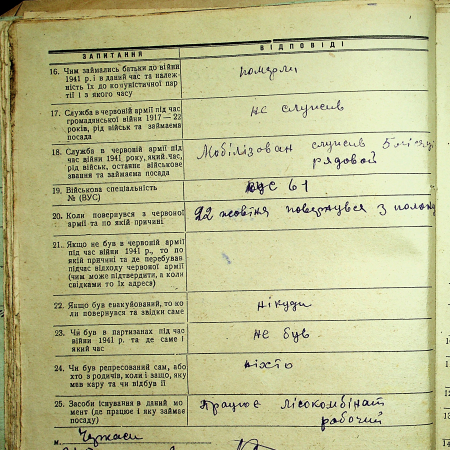 ЗАПИТАННЯ ВІДПОВІДІ
16. Чим займались батьки до війни
1941 р. і в даний час та належ-
ність їх до комуністичної пар-
тії і з якого часу
померли
17. Служба в червоній армії під час
громадянської війни 1917—22
років, рід військ та займаєма
посада
не служив
18. Служба в червоній армії під
час війни 1941 року, який час,
рід військ, останнє військове
звання та займаєма посада
Мобілізован служив 5 міся
рядовой
19. Військова спеціальність
№ (ВУС)
ВУС 61
20. Коли повернувся з червоної
армії та по якій причині
22 жовтня повернувся з полону
21. Якщо не був в червоній армії
під час війни 1941 р., то по
якій причині та де перебував
підчас відходу червоної армії
(чим може підтвердити, а коли
свідками то їх адреса)
22. Якщо був евакуйований, то ко-
ли повернувся та звідки саме
нікуди
23. Чи був в партизанах під час
війни 1941 р. та де саме і
який час
не був
24. Чи був репресований сам, або
хто з родичів, коли і защо, яку
мав кару та чи відбув її
ніхто
25. Засоби існування в даний мо-
мент (де працює і яку займає
посаду)
Працює лісокомбінат
робочий
м. Черкаси